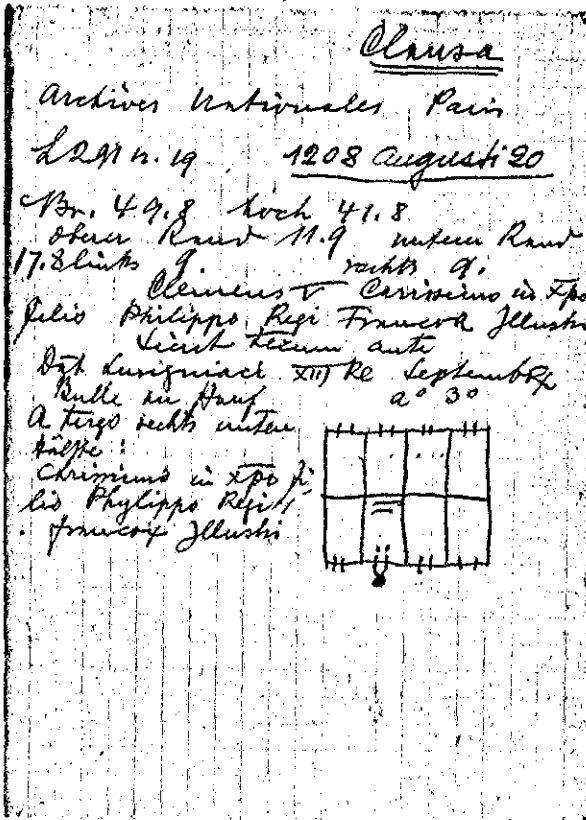 Clausa
Archives Nationales Paris
L 291 n. 19 1208 Augusti 20
Br. 49.8 hoch 41.8
oberer Rand 11.9 unterer Rand
17.8 links 9 rechts 9.
Clemens V Carissimo in Xpo
filio Philippo Regi Francoꝝ Illustri
Licut tecum ante
Dat Lusigniaci XIII Kl Septembꝶ
Bulle an Hanf a° 3°
A tergo rechts untere
Hälfte :
Carissimo in xpo fi-
lio Phylippo Regi
francoꝝ Illustri